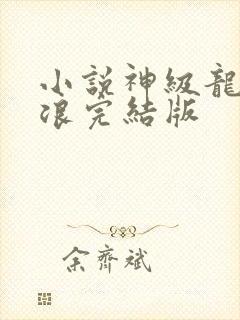 小説神級龍
浪完結版
余齊斌